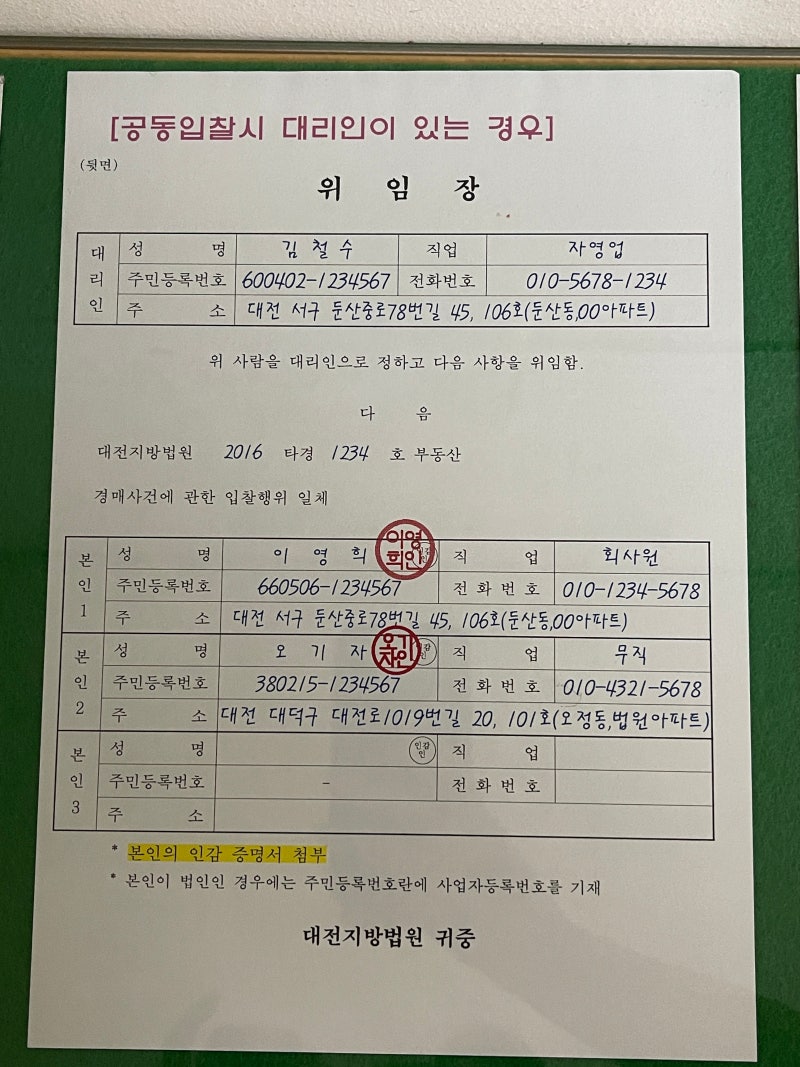 [공동입찰시 대리인이 있는 경우]
(뒷면)
위 임 장
대리인
성 명 김철수 직업 자영업
주민등록번호 600402-1234567 전화번호 010-5678-1234
주 소 대전 서구 둔산중로78번길 45, 106호(둔산동,00아파트)
위 사람을 대리인으로 정하고 다음 사항을 위임함.
다 음
대전지방법원 2016 타경 1234 호 부동산
경매사건에 관한 입찰행위 일체
본인1
성 명 이영희 이영희인 직 업 회사원
주민등록번호 660506-1234567 전화번호 010-1234-5678
주 소 대전 서구 둔산중로78번길 45, 106호(둔산동,00아파트)
본인2
성 명 오기자 오기자인 직 업 무직
주민등록번호 380215-1234567 전화번호 010-4321-5678
주 소 대전 대덕구 대전로1019번길 20, 101호(오정동,법원아파트)
본인3
성 명 인감인 직 업
주민등록번호 - 전화번호
주 소
* 본인의 인감 증명서 첨부
* 본인이 법인인 경우에는 주민등록번호란에 사업자등록번호를 기재
대전지방법원 귀중